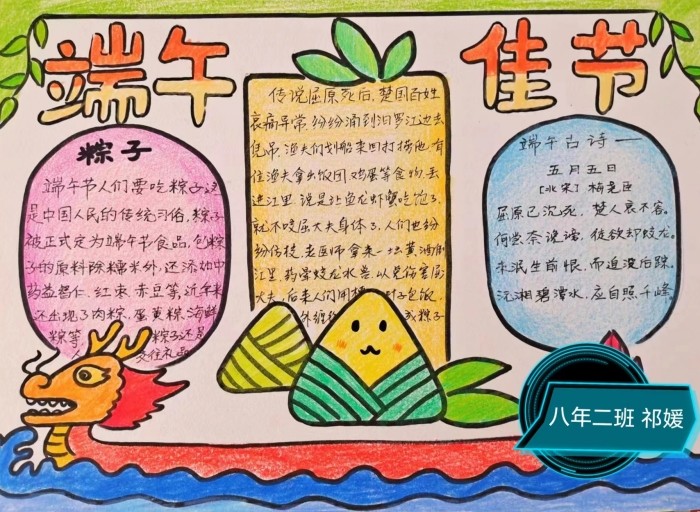 端午佳节
粽子
端午节人们要吃粽子这
是中国人民的传统习俗,粽子
被正式定为端午节食品,包粽
子的原料除糯米外,还添加中
药益智仁、红枣、赤豆等,近年来
还出现了肉粽、蛋黄粽、海鲜
粽等 粽子还是
交往礼品
传说屈原死后,楚国百姓
哀痛异常,纷纷涌到汨罗江边去
凭吊,渔夫们划船来回打捞他,有
位渔夫拿出饭团、鸡蛋等食物,丢
进江里,说是让鱼龙虾蟹吃饱了,
就不咬屈大夫身体了,人们也纷
纷仿效,老医师拿来一坛黄酒倒
江里,药晕蛟龙水兽,以免伤害屈
大夫,后来人们用 叶子包饭,
外缠 成粽子
端午古诗一
五月五日
[北宋] 梅尧臣
屈原已沉死,楚人哀不容。
何尝奈谗谤,徒欲却蛟龙。
未泯生前恨,而追没后踪。
沅湘碧潭水,应自照千峰
八年二班 祁媛